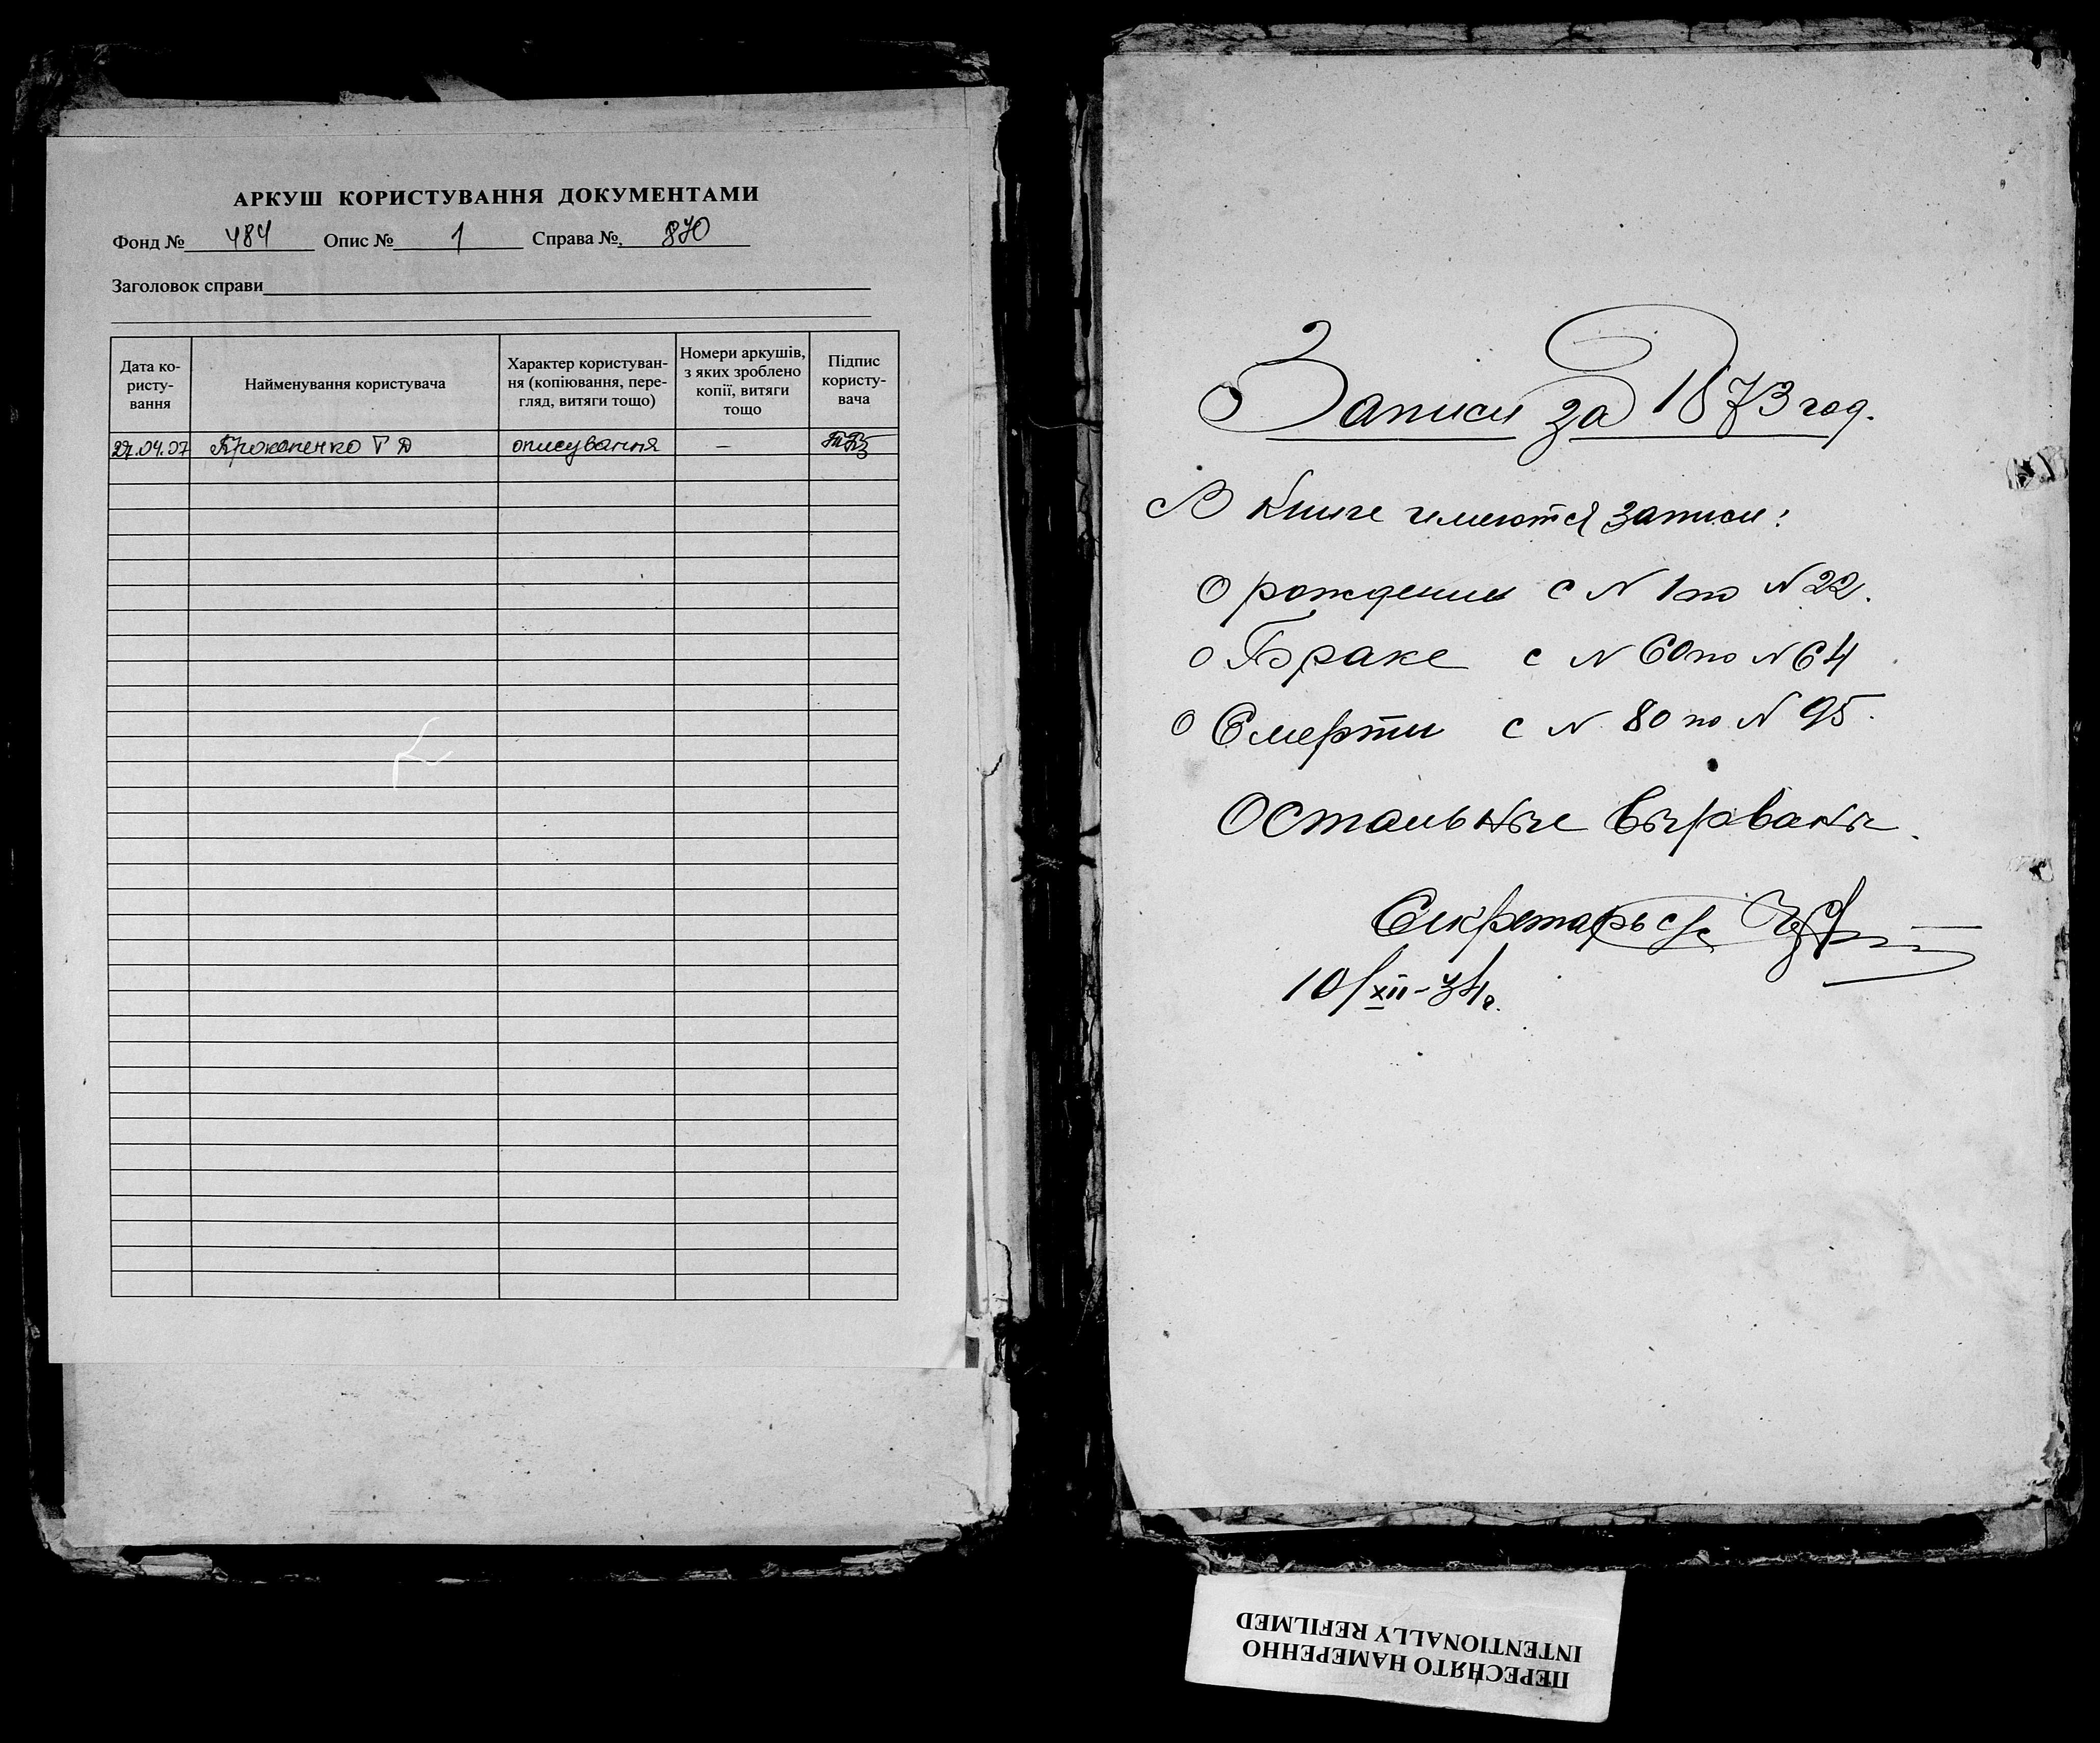 АРКУШ КОРИСТУВАННЯ ДОКУМЕНТАМИ
Фонд № 484 Опис № 1 Справа № 870
Заголовок справи
Дата ко-
ристу-
вання
Найменування користувача
Характер користуван-
ня (копіювання, пере-
гляд, витяги тощо)
Номери аркушів,
з яких зроблено
копії, витяги
тощо
Підпис
користу-
вача
27.04.07 Прокопенко Г Д описування —
Записи за 1873 год.
В Книге имеются записи:
О рождении с N 1 по N 22.
О Браке с N 60 по N 64
О Смерти с N 80 по N 95.
Остальные вырваны.
Секретарь с/с
10/XII-34г.
ПЕРЕСНЯТО НАМЕРЕННО
INTENTIONALLY REFILMED